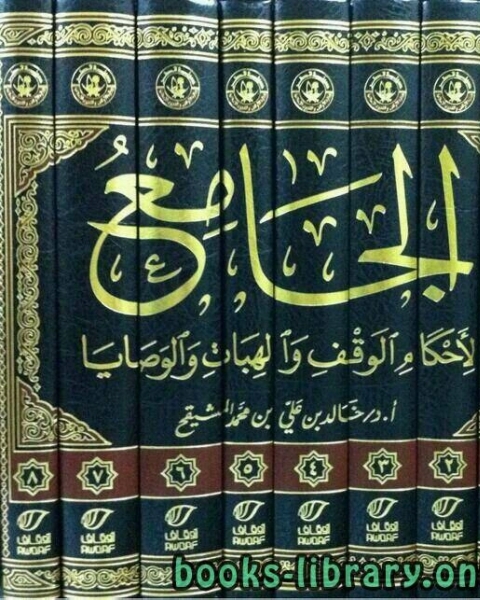 الجامع
لأحكام الوقف والهبات والوصايا
أ.د. خالد بن علي بن محمد المشيقح
٨ ٧ ٦ ٥ ٤ ٣ ٢
الأوقاف الأوقاف الأوقاف الأوقاف الأوقاف الأوقاف الأوقاف
AWQAF AWQAF AWQAF AWQAF AWQAF AWQAF AWQAF
books-library.on